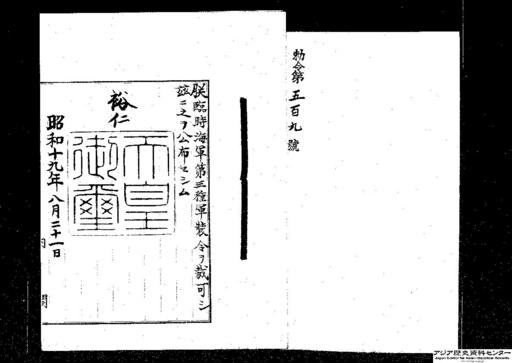 勅令第五百九號
朕臨時海軍第三種軍裝令ヲ裁可シ
茲ニ之ヲ公布セシム
裕仁
天皇
御璽
昭和十九年八月二十一日
内閣
アジア歴史資料センター
Japan Center for Asian Historical Records